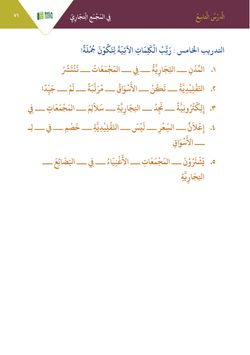 الدَّرْسُ التَّاسِعُ
فِي المُجَمَّعِ التِّجَارِيِّ
٧٦
التدريب الخامس : رَتِّبْ الْكَلِمَاتِ الآتِيَةَ لِتَكُوْنَ جُمْلَةً!
١. المُدُنِ ـــ التِّجَارِيَّةُ ـــ فِي ـــ المُجَمَّعَاتُ ـــ تَنْتَشِرُ
٢. التَّقْلِيْدِيَّةُ ـــ تَكُنْ ـــ الأَسْوَاقُ ـــ مُرَتَّبَةً ـــ لَمْ ـــ جَيِّدًا
٣. إِلِكْتُرُونِيَّةً ـــ نَجِدُ ـــ التِّجَارِيَّةِ ـــ سَلَالِمَ ـــ المُجَمَّعَاتِ ـــ فِي
٤. إِعْلَانُ ـــ السِّعْرِ ـــ لَيْسَ ـــ التَّقْلِيْدِيَّةِ ـــ خَصْمٍ ـــ فِي ـــ لِـ
ـــ الأَسْوَاقِ
٥. يَشْتَرُوْنَ ـــ المُجَمَّعَاتِ ـــ الأَغْنِيَاءُ ـــ فِي ـــ البَضَائِعَ ـــ
التِّجَارِيَّةِ